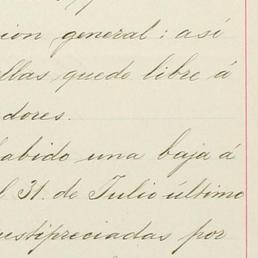 ion general: así
llas quede libre á
dores.
habido una baja á
l 31. de Julio último
uestipreciadas por